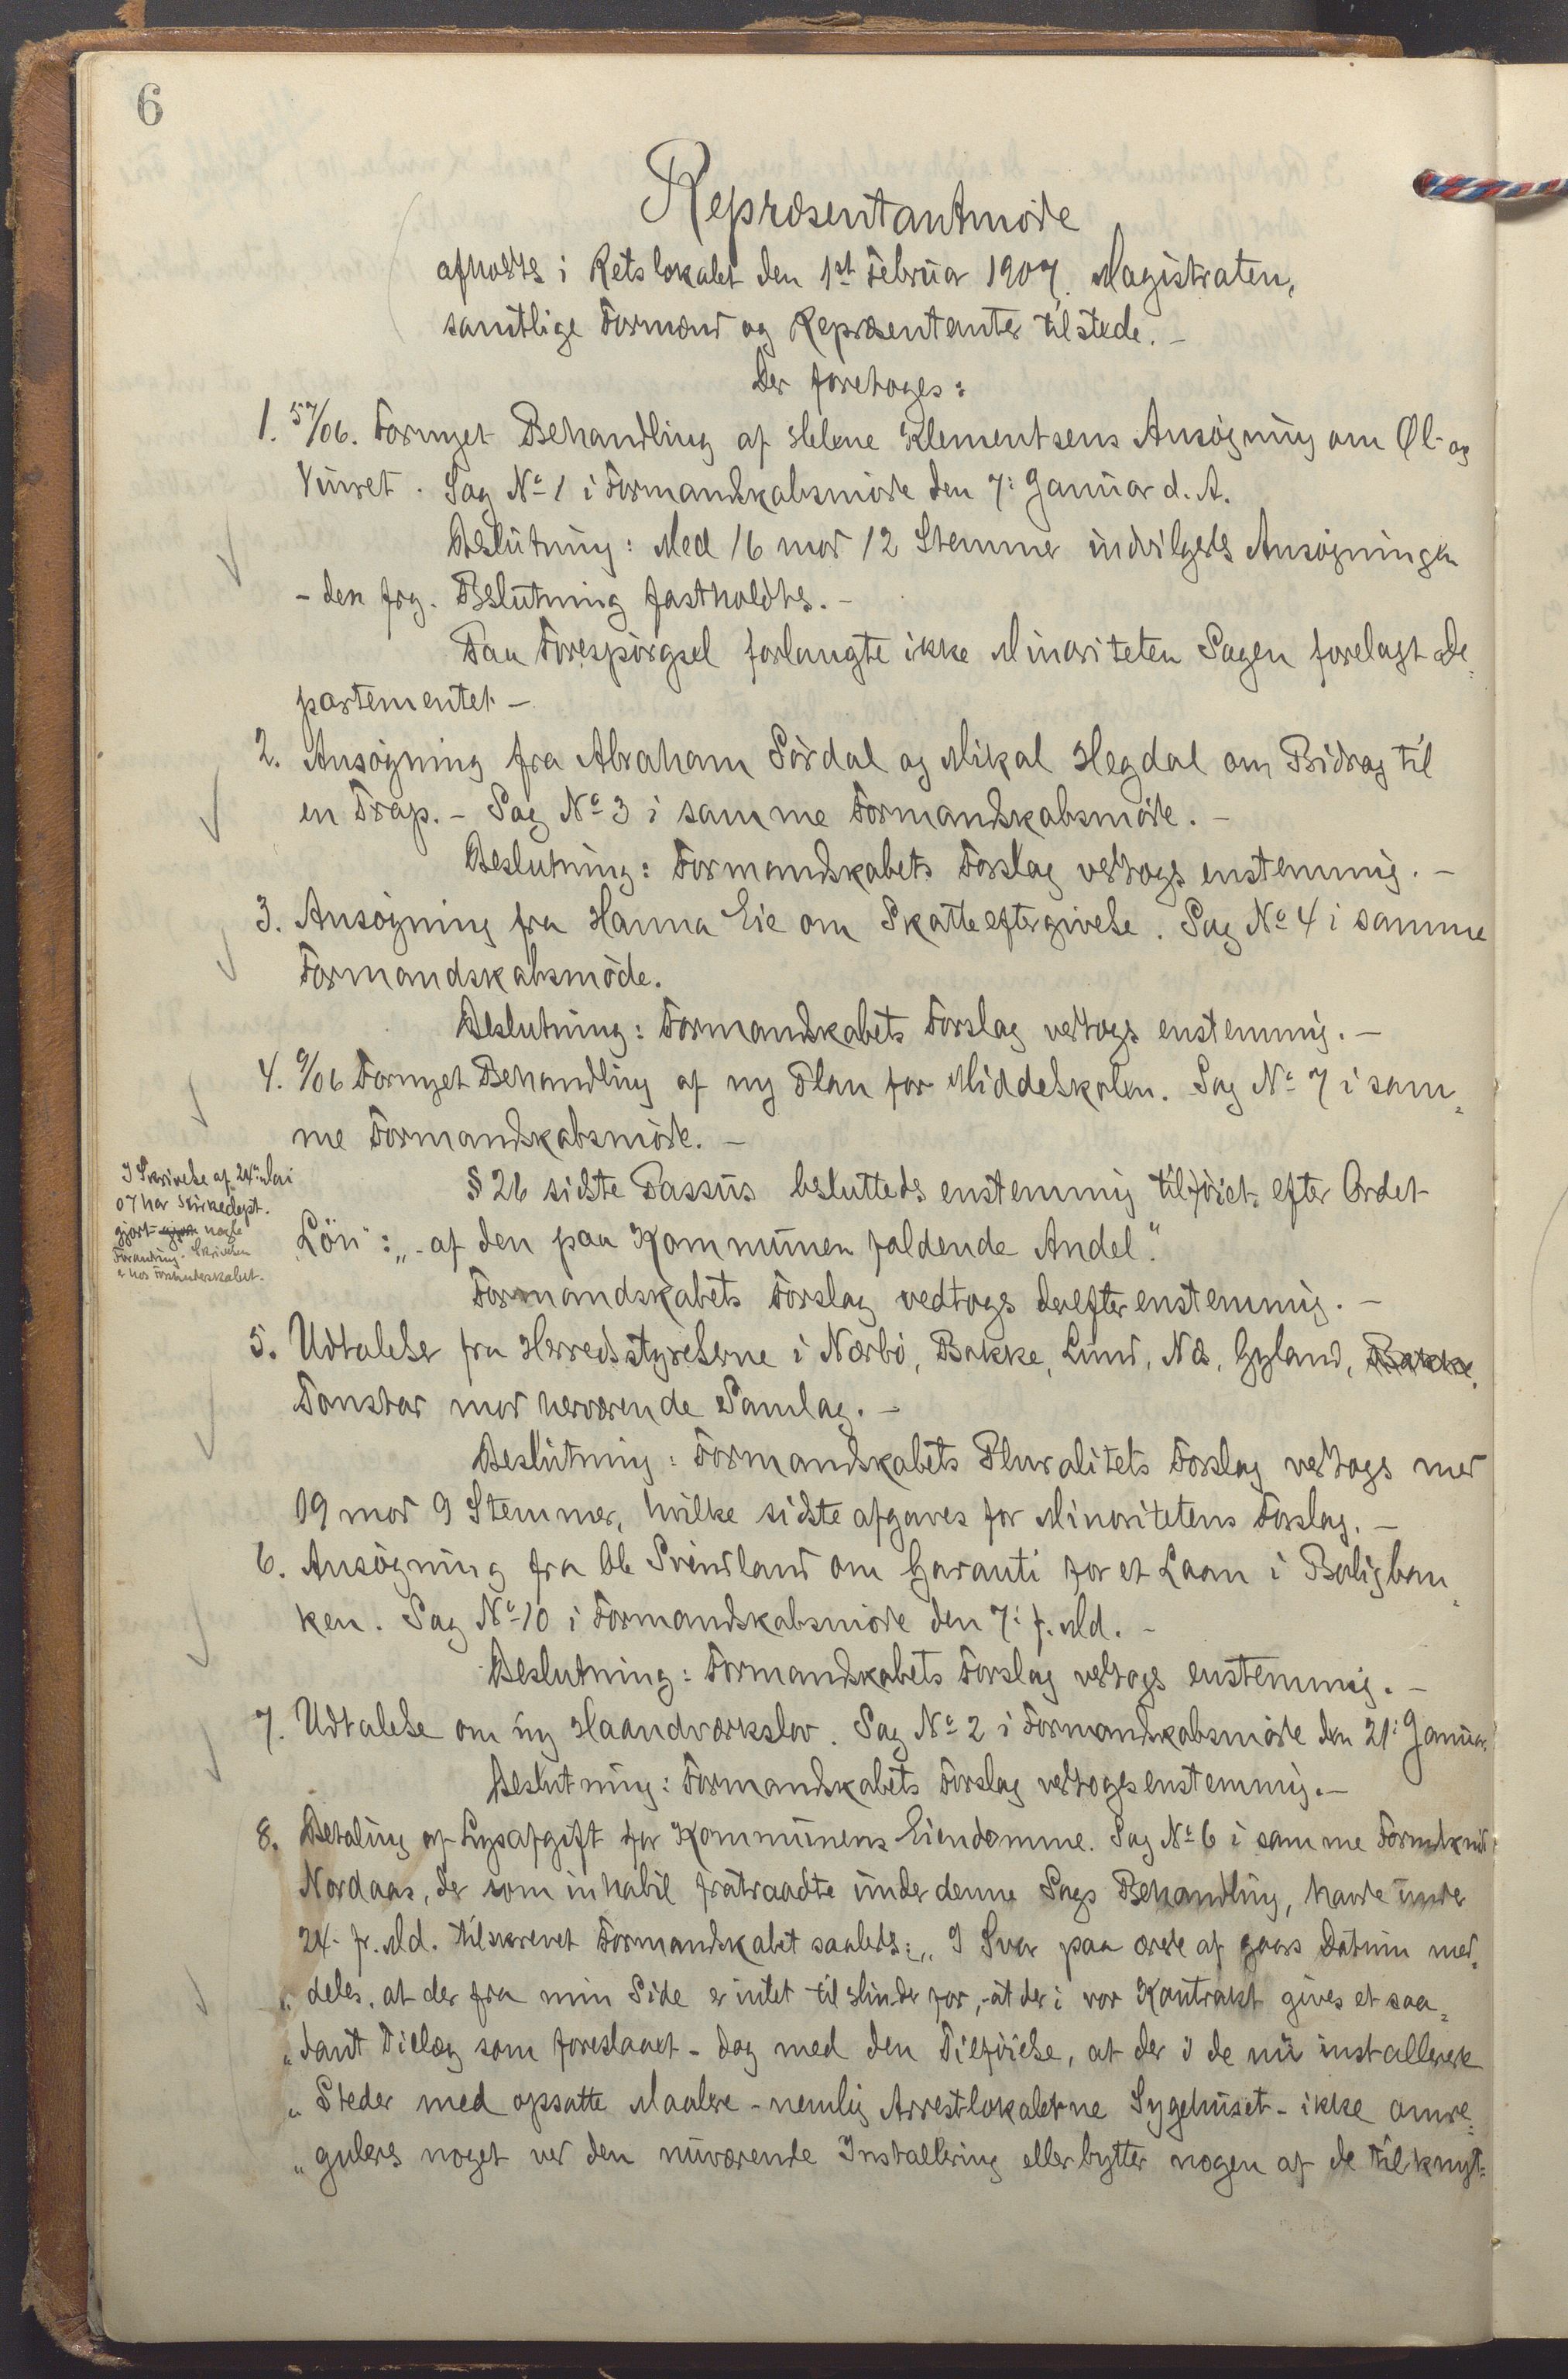 6
Repræsentantmøde
afholdtes i Retslokalet den 1 st Februar 1907. Magistraten,
samtlige Formænd og Repræsentanter tilstede. –
Der foretoges:
1. 57/06. Fornyet Behandling af Helene Klementsens Ansøgning om Øl- og
Vinret. Sag No 1 i Formandskabsmøde den 7: Januar d. A.
Beslutning: Med 16 mod 12 Stemmer indvilgedes Ansøgningen
– den frg. Beslutning fastholdtes. –
Paa Forespørgsel forlangte ikke Minoriteten Sagen forelagt De=
partementet –
2. Ansøgning fra Abraham Sørdal og Mikal Hegdal om Bidrag til
en Trap. – Sag No 3 i samme Formandskabsmøde. –
Beslutning: Formandskabets Forslag vedtogs enstemmig. –
3. Ansøgning fra Hanna Eie om Skatteeftergivelse. Sag No 4 i samme
Formandskabsmøde.
Beslutning: Formandskabets Forslag vedtogs enstemmig. –
4. 9/06 Fornyet Behandling af ny Plan for Middelskolen. Sag No 7 i sam=
me Formandskabsmøde. –
I Skrivelse af 24: Mai
07 har Kirkedept.
gjort gjort nogle
Forandring. Skrivelsen
er hos Forstanderskabet.
§ 26 sidste Passus besluttedes enstemmig tilføiet efter Ordet
Løn": „– af den paa Kommunen faldende Andel."
Formandskabets Forslag vedtogs derefter enstemmig. –
5. Udtalelser fra Herredsstyrelserne i Nærbø, Bakke, Lund, Næs, Gyland, Bakke,
Tonstad mod herværende Samlag. –
Beslutning: Formandskabets Pluralitets Forslag vedtogs med
19 mod 9 Stemmer, hvilke sidste afgaves for Minoritetens Forslag. –
6. Ansøgning fra Ole Svindland om Garanti for et Laan i Boligban=
ken. Sag No 10 i Formandskabsmøde den 7: f. Md. –
Beslutning: Formandskabets Forslag vedtogs enstemmig. –
7. Udtalelse om ny Haandværkslov. Sag No 2 i Formandskabsmøde den 21: Januar
Beslutning: Formandskabets Forslag vedtoges enstemmig. –
8. Betaling af Lysafgift for Kommunens Eiendomme. Sag No 6 i samme
Nordaas, der som inhabil fratraadte under denne Sags Behandling, havde under
24. fr. Md. tilskrevet Formandskabet saaledes: „I Svar paa ærede af gaars Datum med=
„deles, at der fra min Side er intet til Hinder for, at der i vor Kontrakt gives et saa=
„dant Tillæg som foreslaaet – dog med den Tilføielse, at der i de nu installerede
„Steder med opsatte Maalere – nemlig Arrestlokalerne Sygehuset – ikke omre=
„guleres noget ved den nuværende Installering eller bytter nogen af de tilknyt=